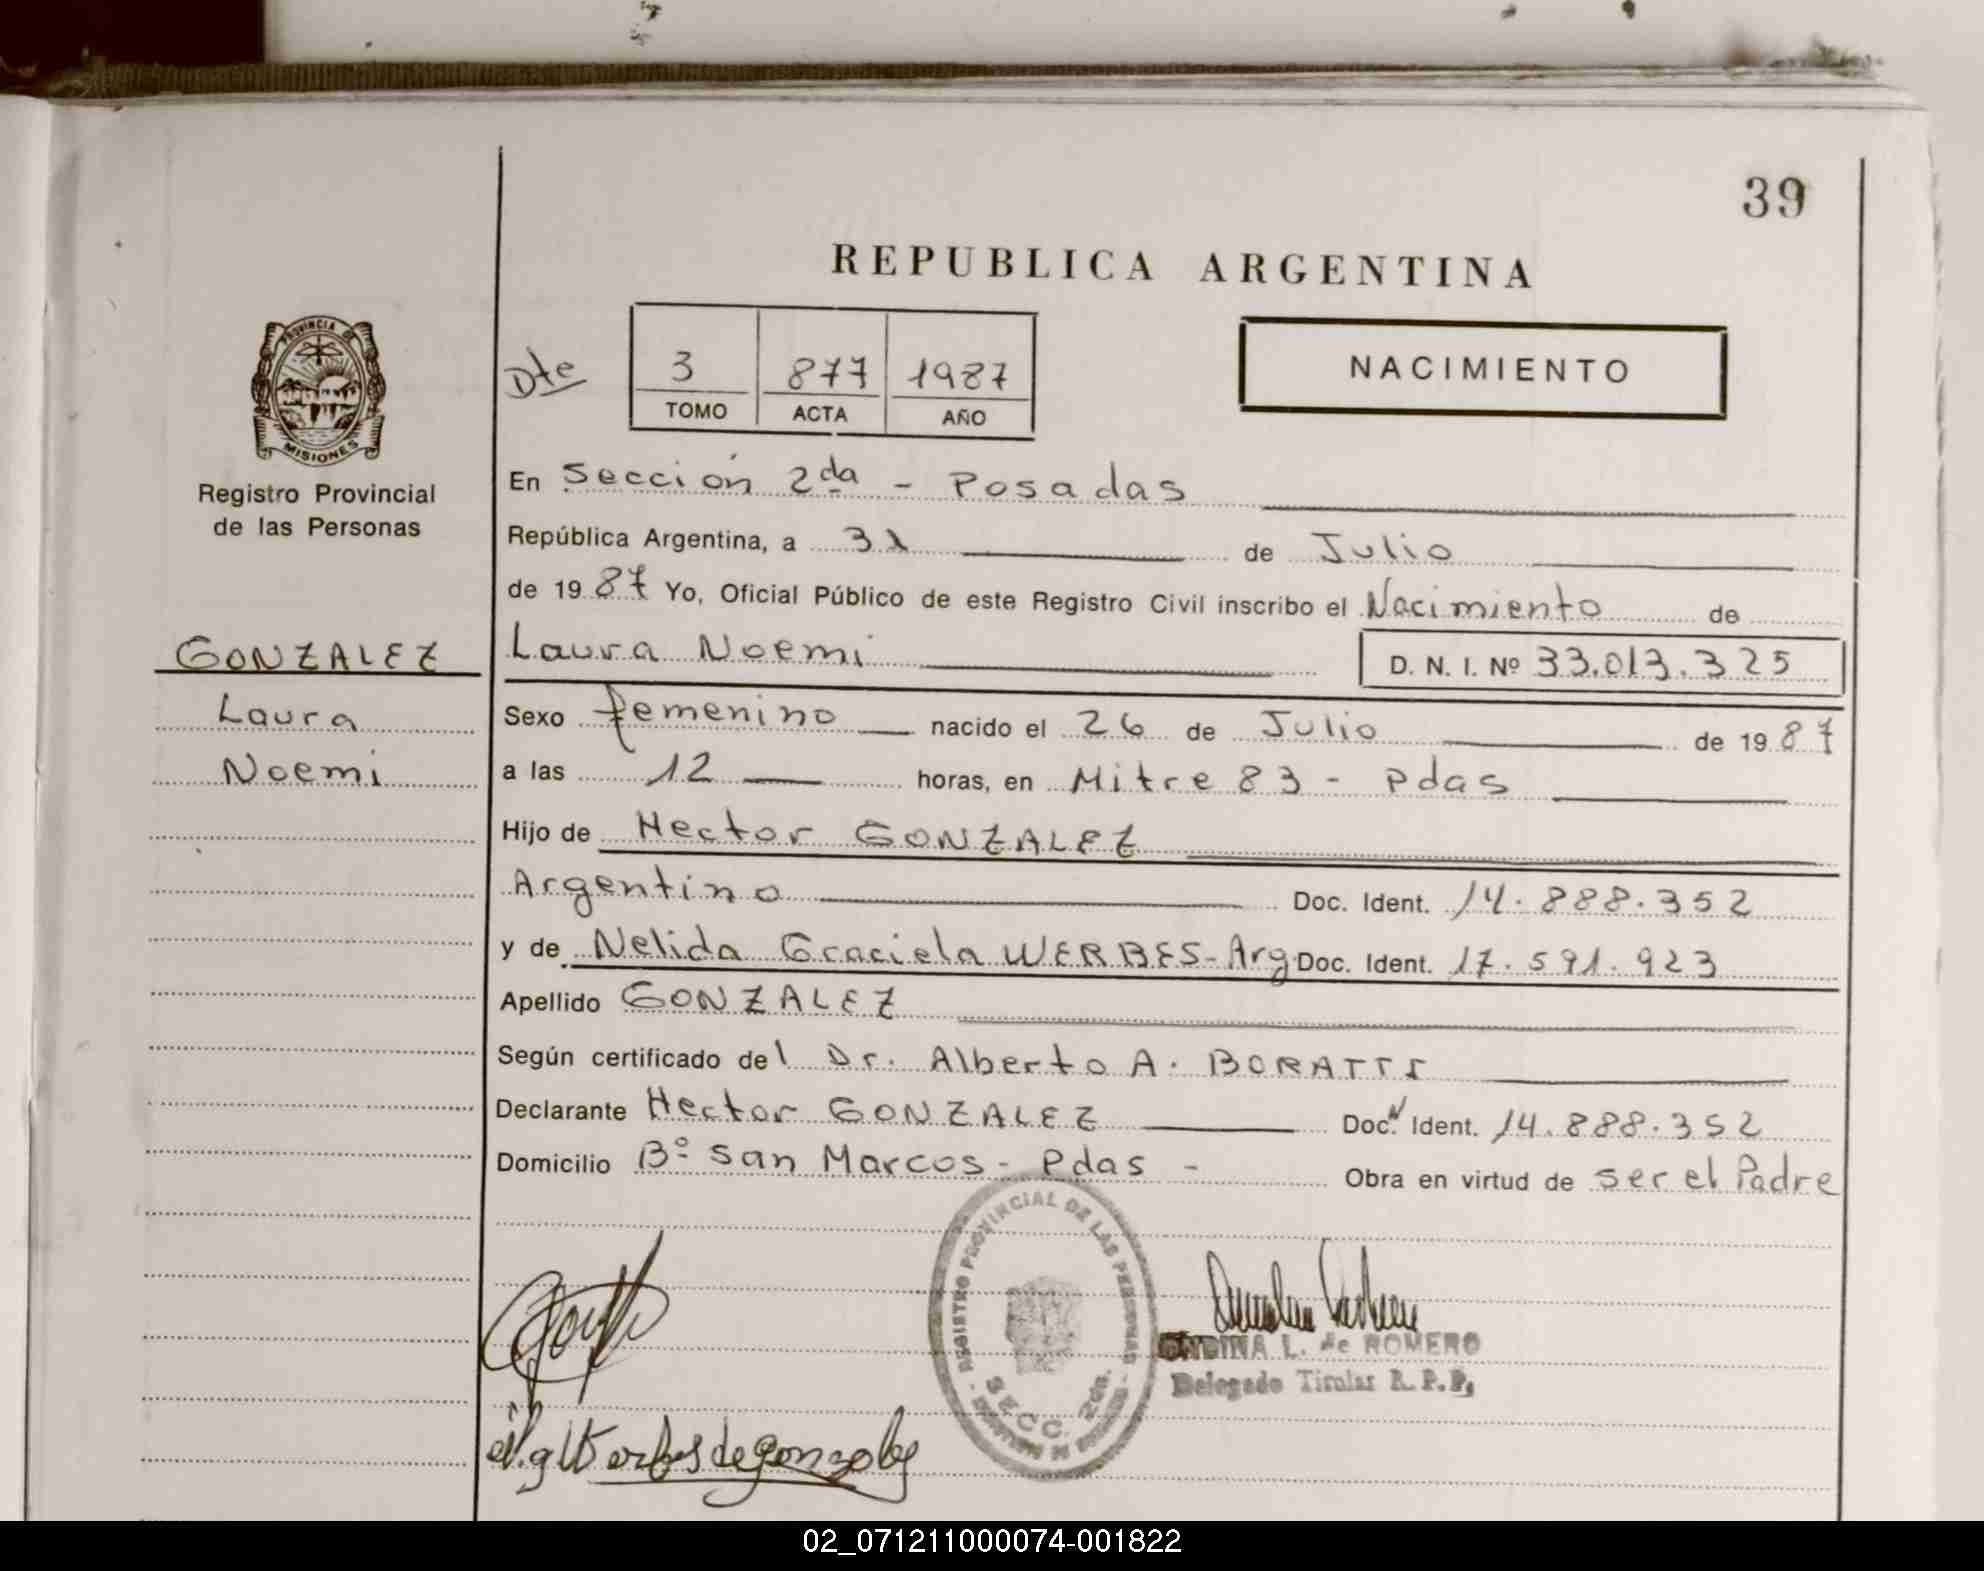 39
REPUBLICA ARGENTINA
PROVINCIA DE
MISIONES
Registro Provincial
de las Personas
Dte
3 877 1987
TOMO ACTA AÑO
NACIMIENTO
En Sección 2da - Posadas
República Argentina, a 31 de Julio
de 1987 Yo, Oficial Público de este Registro Civil inscribo el Nacimiento de
GONZALEZ
Laura Noemi D. N. I. Nº 33.013.325
Laura
Sexo femenino nacido el 26 de Julio de 1987
Noemi
a las 12 horas, en Mitre 83 - Pdas
Hijo de Hector GONZALEZ
Argentino Doc. Ident. 14.888.352
y de Nelida Graciela WERBES - Arg Doc. Ident. 17.591.923
Apellido GONZALEZ
Según certificado del Dr. Alberto A. BORATTI
Declarante Hector GONZALEZ Doc. Ident. 14.888.352
Domicilio Bº San Marcos - Pdas - Obra en virtud de ser el Padre
REGISTRO PROVINCIAL DE LAS PERSONAS
SECC. 2da.
L. de ROMERO
Delegado Titular R. P. P.
de Gonzalez
02_071211000074-001822